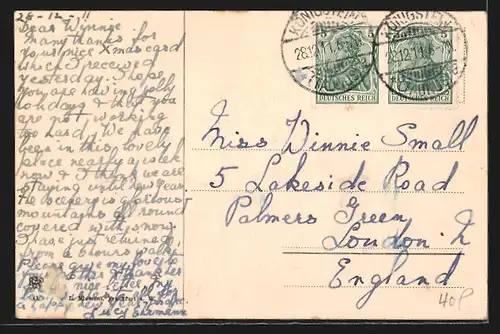 28-12-11
Dear Winnie
Many thanks for
your nice Xmas card
which I received
yesterday. I hope
you are having jolly
holidays & that you
are not working
too hard. We have
been in this lovely
place nearly a week
now & I think we are
staying until New Year.
The scenery is glorious
mountains all round
covered with snow.
I have just returned
from a 6 hours walk.
Please give my love to
nice
a happy New Year
Lucy
KÖNIGSTEIN
28.12.11
(TAUNUS)
KÖNIGSTEIN
28.12.11
(TAUNUS)
5 5
DEUTSCHES REICH
DEUTSCHES REICH
Miss Winnie Small
5 Lakeside Road
Palmers Green
London N
England